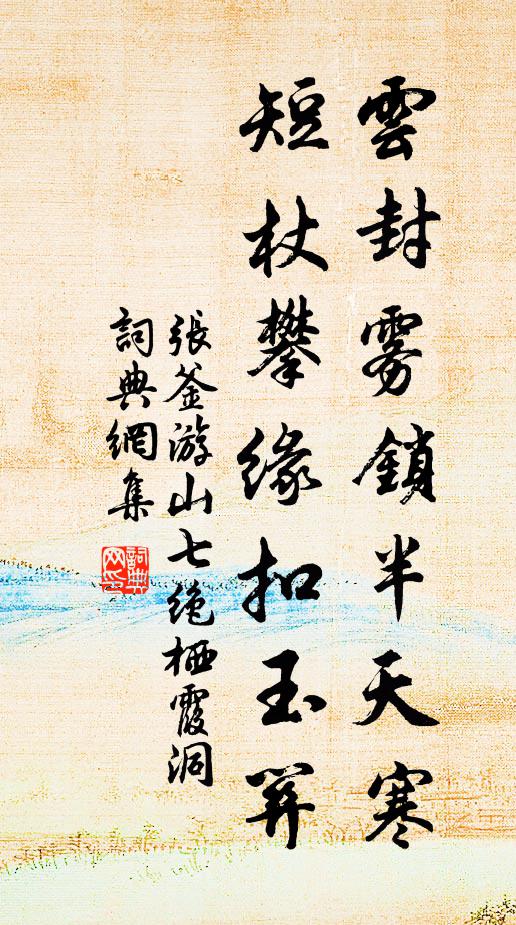 雲封雾鎖半天寒
短杖攀缘扣玉關
張釜游山七絕栖霞洞
詞典網集
詞典
网印